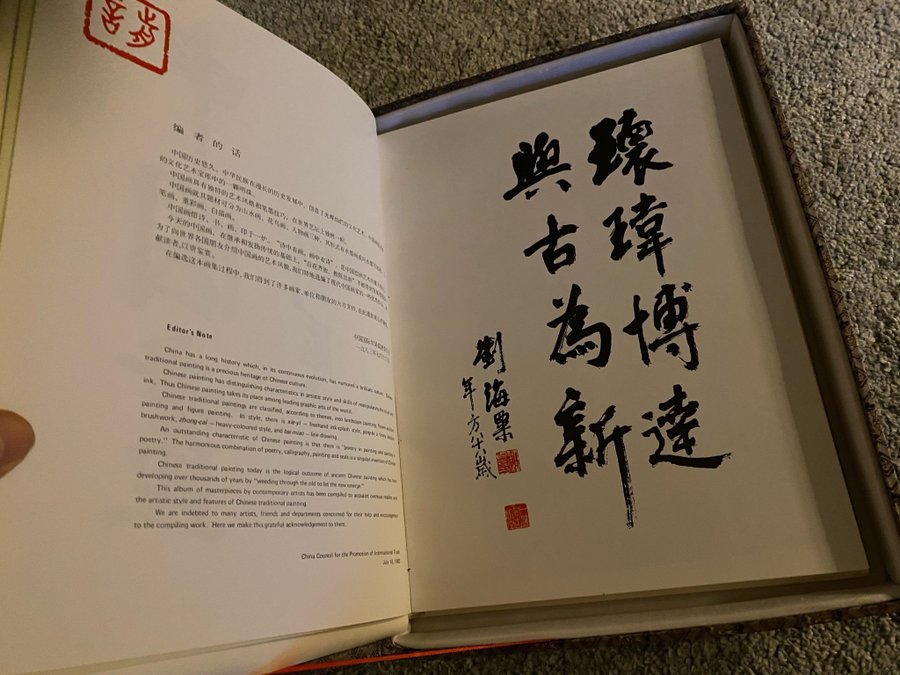 编者的话
中国历史悠久。中华民族在漫长的历史发展中，创造了光辉灿烂的文化艺术。中国画是祖国
的文化艺术宝库中的一颗明珠。
中国画具有独特的艺术风格和笔墨技巧，在世界艺坛上独树一帜。
中国画就其题材可分为山水画、花鸟画、人物画三种，其形式有水墨画
笔画、重彩画、白描画。
中国画熔诗、书、画、印于一炉。“诗中有画，画中有诗”，是中国绘画艺术的
今天的中国画，在继承和发扬传统的基础上，“百花齐放，推陈出新”
为了向世界各国朋友介绍中国画的艺术风貌，我们特地选编了现代中国画家的一些优秀作品，
献读者，以资鉴赏。
在编选这本画集过程中，我们得到了许多画家、单位和朋友的大力支持，在此谨致谢意。
Editor's Note
China has a long history which, in its continuous evolution, has nurtured a brilliant culture.
traditional painting is a precious heritage of Chinese culture.
Chinese painting has distinguishing characteristics in artistic style and skills of manipulating the brush and
ink. Thus Chinese painting takes its place among leading graphic arts of the world.
Chinese traditional paintings are classified, according to themes, into landscape painting, flower and bird
painting and figure painting. In style, there is xie-yi — freehand ink-splash style, gong-bi — finely detailed
brushwork, zhong-cai — heavy-coloured style, and bai-miao — line drawing.
An outstanding characteristic of Chinese painting is that there is "poetry in painting and painting in
poetry." The harmonious combination of poetry, calligraphy, painting and seals is a singular invention of Chinese
painting.
Chinese traditional painting today is the logical outcome of ancient Chinese painting which has been
developing over thousands of years by "weeding through the old to let the new emerge."
This album of masterpieces by contemporary artists has been compiled to acquaint overseas readers with
the artistic style and features of Chinese traditional painting.
We are indebted to many artists, friends and departments concerned for their help and encouragement
to the compiling work. Here we make this grateful acknowledgement to them.
China Council for the Promotion of International Trade
July 10, 1982
瓌瑋博達
與古為新
劉海粟
年方八十六歲